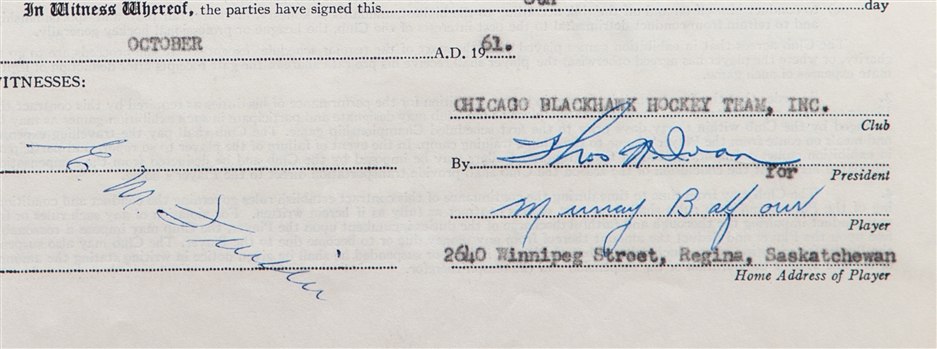 In Witness Whereof, the parties have signed this day
OCTOBER A.D. 1961.
ITNESSES:
CHICAGO BLACKHAWK HOCKEY TEAM, INC.
Club
By Thos N. Ivan
for President
Murray Balfour
Player
E. M.
2640 Winnipeg Street, Regina, Saskatchewan
Home Address of Player